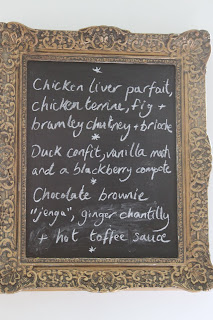 *
Chicken liver parfait,
chicken terrine, fig +
bramley chutney + brioche
*
Duck confit, vanilla mash
and a blackberry compote
*
Chocolate brownie
"jenga", ginger chantilly
+ hot toffee sauce
*